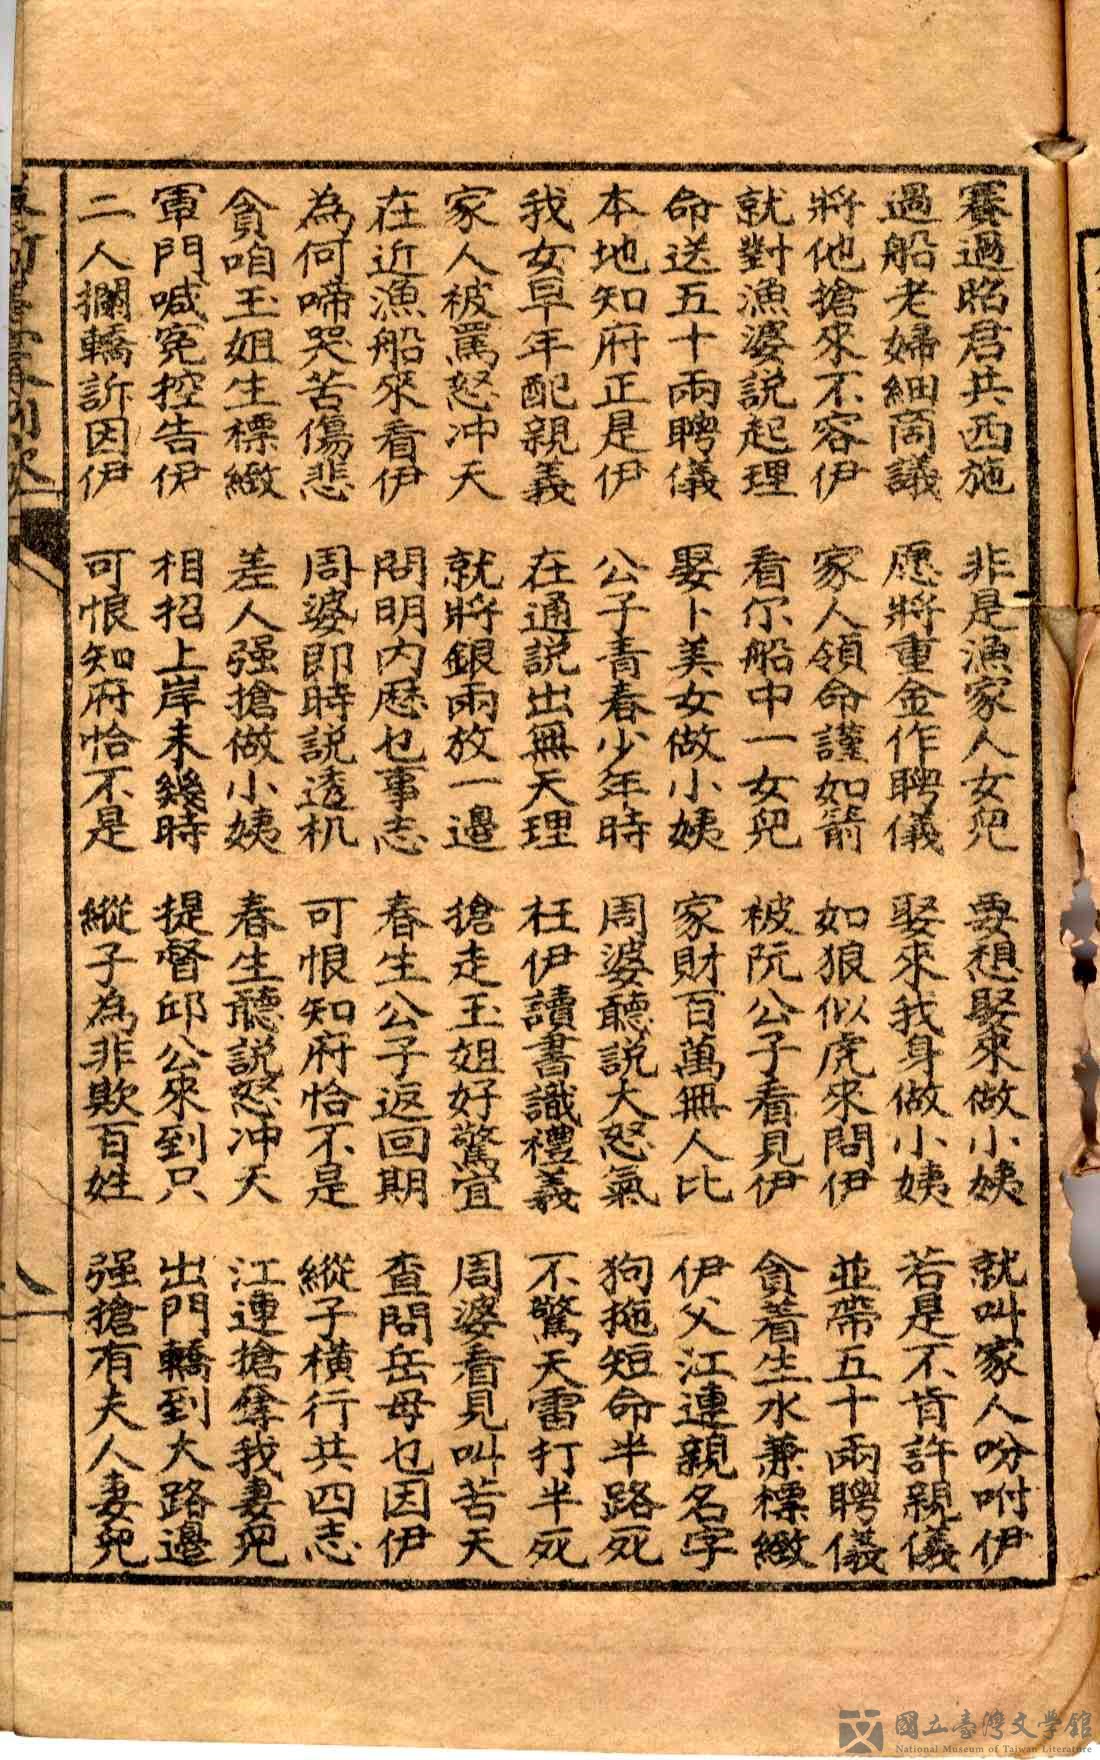 賽過昭君共西施 非是漁家人女兒 要想娶來做小姨 就叫家人吩咐伊
過船老婦細商議 愿將重金作聘儀 娶來我身做小姨 若是不肯許親儀
將他搶來不容伊 家人領命謹如箭 如狼似虎來問伊 並帶五十兩聘儀
就對漁婆説起理 看尔船中一女兒 被阮公子看見伊 貪着生水兼標緻
命送五十兩聘儀 娶卜美女做小姨 家財百萬無人比 伊父江連親名字
本地知府正是伊 公子青春少年時 周婆聽説大怒氣 狗拖短命半路死
我女早年配親義 在通説出無天理 枉伊讀書識禮義 不驚天雷打半死
家人被罵怒冲天 就將銀兩放一邊 搶走玉姐好驚宜 周婆看見叫苦天
在近漁船來看伊 問明内歷乜事志 春生公子返回期 查問岳母乜因伊
為何啼哭苦傷悲 周婆即時説透机 可恨知府恰不是 縱子橫行共四志
貪咱玉姐生標緻 差人强搶做小姨 春生聽説怒冲天 江連搶奪我妻兒
軍門喊冤控告伊 相招上岸未幾時 提督邱公來到只 出門轎到大路邊
二人攔轎訴因伊 可恨知府恰不是 縱子為非欺百姓 强搶有夫人妻兒
八
國立臺灣文學館
National Museum of Taiwan Literature